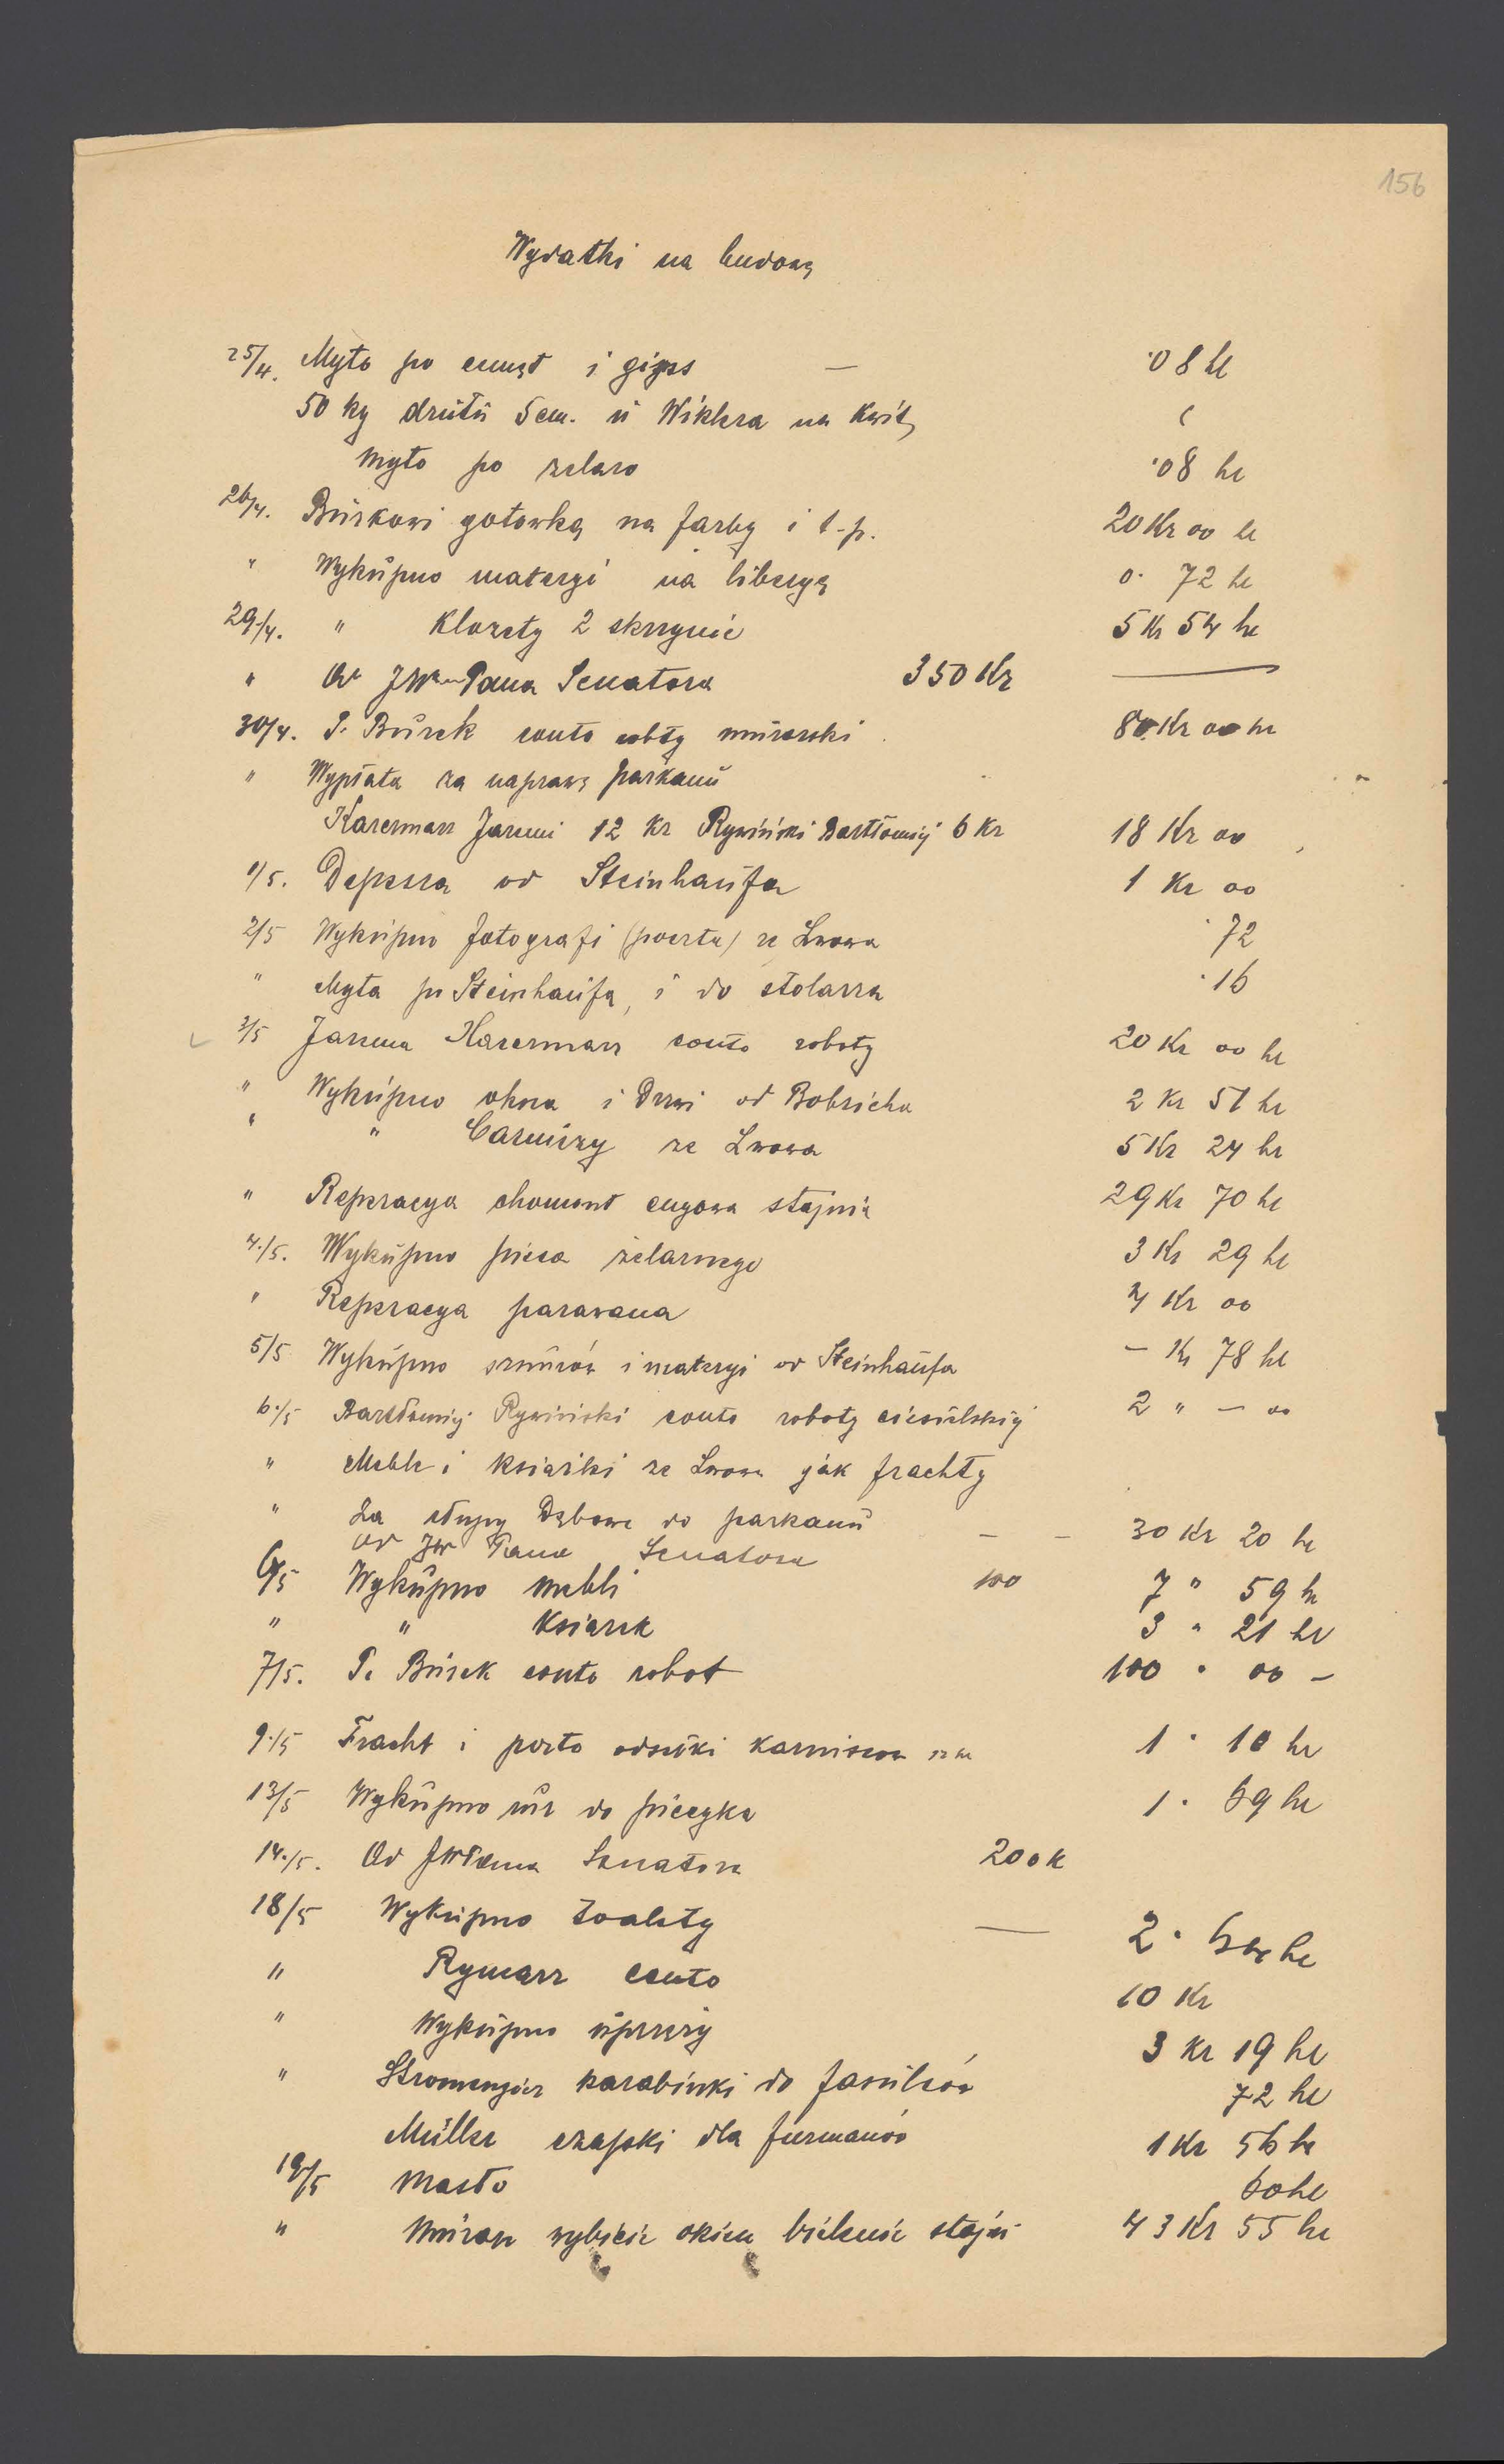 156
Wydatki na budowę
25/4. Myto po cement i gips — ·08 hl
50 kg drutu 5cm. u Wiklera na Kwit
Myto po żelazo ·08 hl
26/4. Burkowi gotowką na farby i t-p. 20 Kr oo hl
" Wykupno materyi na liberyę 0· 72 hl
29./4. " Klozety 2 skrzynie 5 Kr 54 hl
" Od JW Pana Senatora 350 Kr —
30/4. P. Burek conto roboty murarski 80 Kr oo hl
" Wypłata za naprawę parkanu
Kacermarz Jaremi 12 Kr Rywiński Bartłomiej 6 Kr 18 Kr oo
1/5. Depesza od Steinhaufa 1 Kr oo
2/5 Wykupno fotografi (poczta) ze Lwowa ·72
" Myta po Steinhaufa, i do stolarza ·16
3/5 Jarema Kacermarz conto roboty 20 Kr oo hl
" Wykupno okna i Drzwi od Bobricha 2 Kr 51 hl
" " Carniszy ze Lwowa 5 Kr 24 hl
" Reperacya chomont cugowa stajnia 29 Kr 70 hl
4./5. Wykupno pieca żelaznego 3 Kr 29 hl
" Reperacya parawana 4 Kr oo
5/5 Wykupno sznurów i materyi od Steinhaufa — Kr 78 hl
6./5 Bartłomiej Rywiński conto roboty ciesielskiej 2 " — oo
" Meble i książki ze Lwowa jak frachty
" Za słupy Dębowe do parkanu — — 30 Kr 20 hl
od JW Pana Senatora 100
6/5 Wykupno mebli 7 " 59 hl
" " Książek 3 " 21 hl
7/5. P. Burek conto robot 100 " oo —
9./5 Fracht i porto odsełki karniszow 1 · 10 hl
13/5 Wykupno rur do piecyka 1 · 69 hl
14./5. Od JWPana Senatora 200 K
18/5 Wykupno toalety — 2 · hl
" Rymarz conto 10 Kr
" Wykupno uprzęży 3 Kr 19 hl
" Stromenger karabinki do 72 hl
Müller czapki dla furmanów 1 Kr 56 hl
19/5 Masło 60 hl
" Murarz wybicie okien bielenie stajni 43 Kr 55 hl